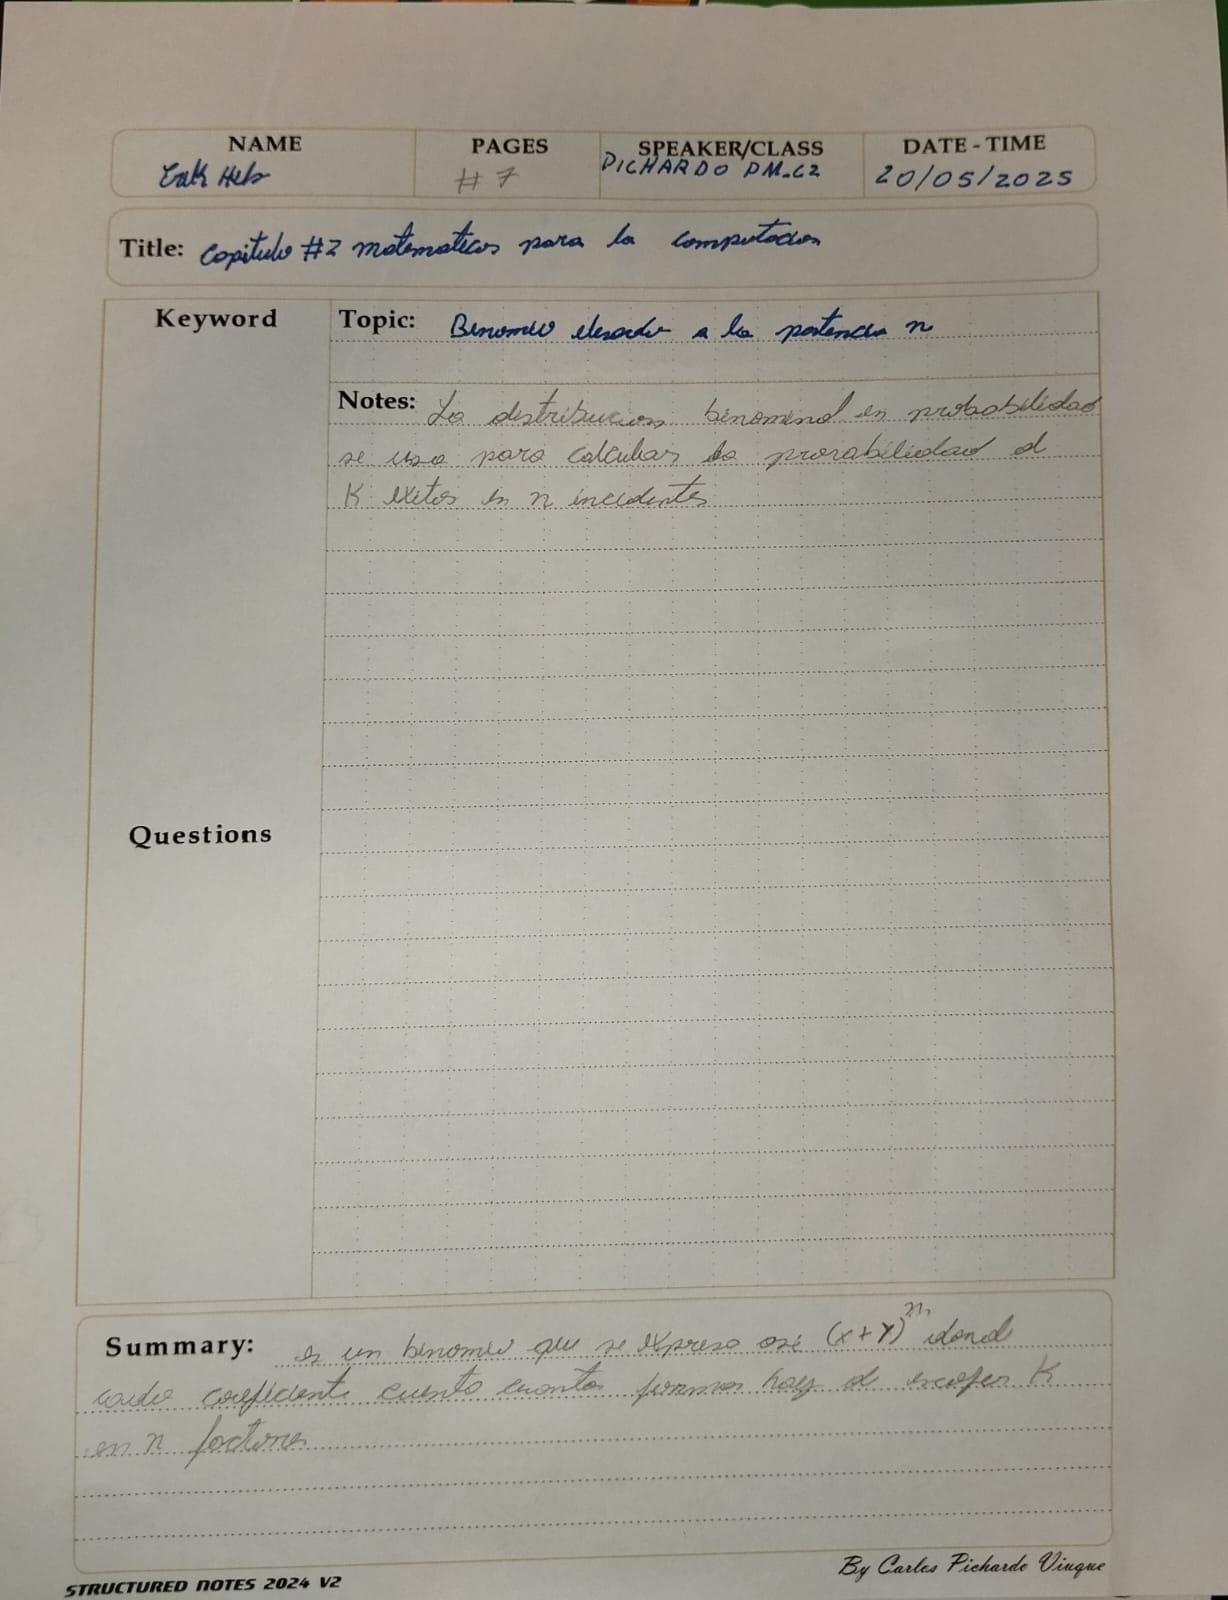 NAME PAGES SPEAKER/CLASS DATE - TIME
Erik # 7 PICHARDO PM-C2 20/05/2025
Title: Capitulo #2 matematicas para la computacion
Keyword
Topic: Binomio elevado a la potencia n
Notes: La distribucion binominal en probabilidad
se usa para calcular la prorabilidad d
K exitos en n incidentes
Questions
Summary: es un binomio que se expresa asi (x+y)^n donde
cada coeficiente cuenta cuantas formas hay d escoger K
en n factores
STRUCTURED NOTES 2024 V2
By Carlos Pichardo Viuque